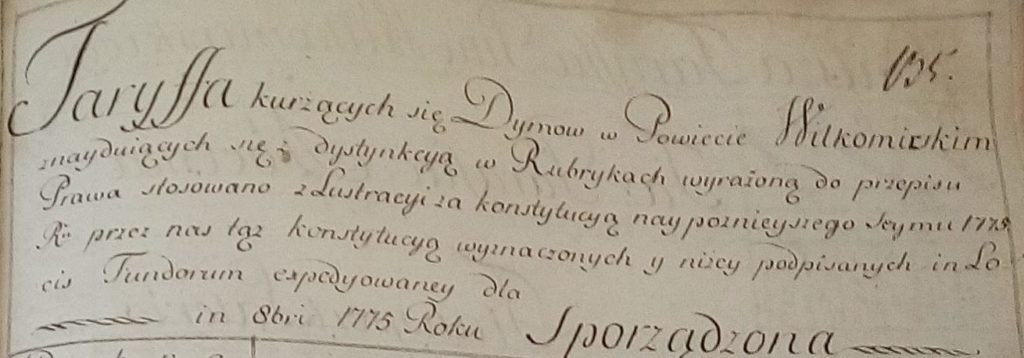 135.
Taryffa kurżących się Dymow w Powiecie Wilkomirskim
znayduiących się z dystynkcyą w Rubrykach wyrażoną do przepisu
Prawa stosowano z Lustracyi za konstytucyą naypoznieyszego Seymu 1775
Ru przez nas tąż konstytucyą wyznaczonych y niżey podpisanych in Lo-
cis Fundorum expedyowaney dla
in 8bri 1775 Roku Sporządzona